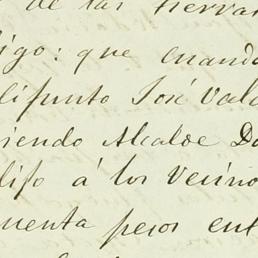 de las tierra
igo: que cuando
difunto José Vald
iendo Alcalde D
dijo á los Vecino
uenta pesos ent